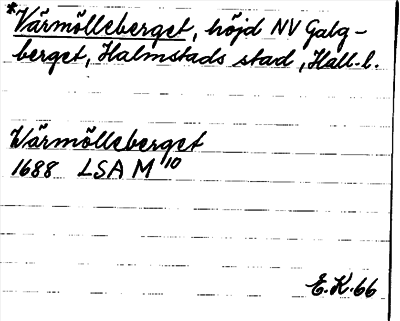 *Värmölleberget, höjd NV Galg-
berget, Halmstads stad, Hall. l.
Wärmölleberget
1688 LSA M 10
E.K. 66